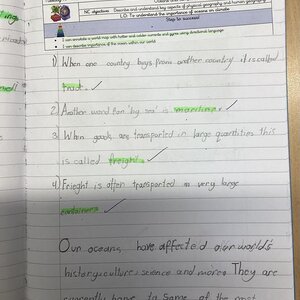 NC objectives
Describe and understand key aspects of physical geography and human geography
L.O: To understand the importance of oceans on climate
Steps to success!
I can annotate a world map with hotter and colder currents and gyres using directional language
I can describe importance of the ocean within our world
1) When one country buys from another country it is called
trad.
2) Another word for 'by sea' is maritime.
3) When goods are transported in large quantities this
is called freight.
4) Frieght is often transported in very large
containers
Our oceans have affected our world's
history, culture, science and more. They are
currently home to some of the most